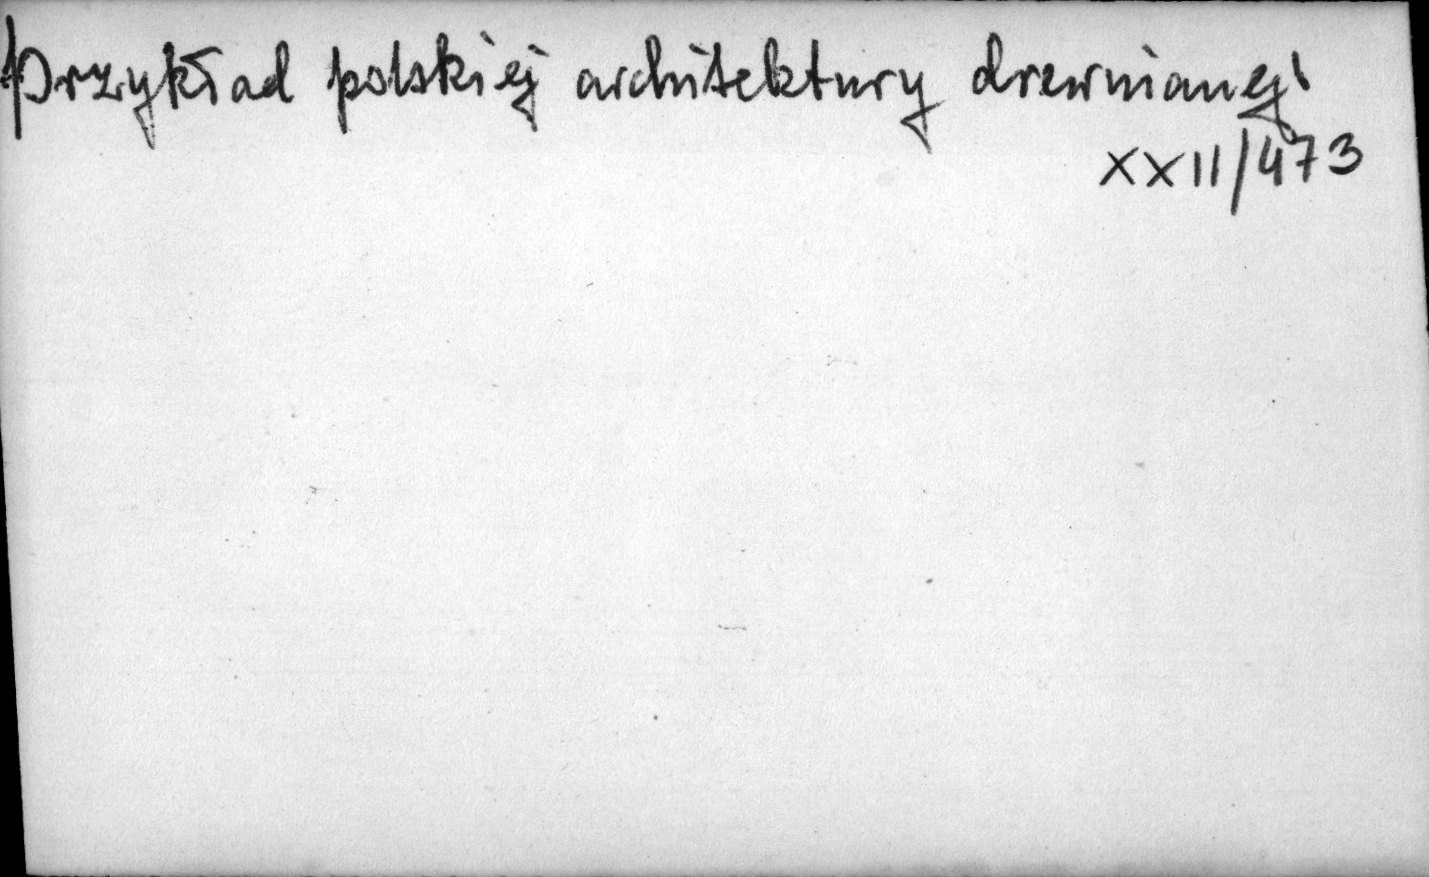 Przykład polskiej architektury drewnianej
XXII/473